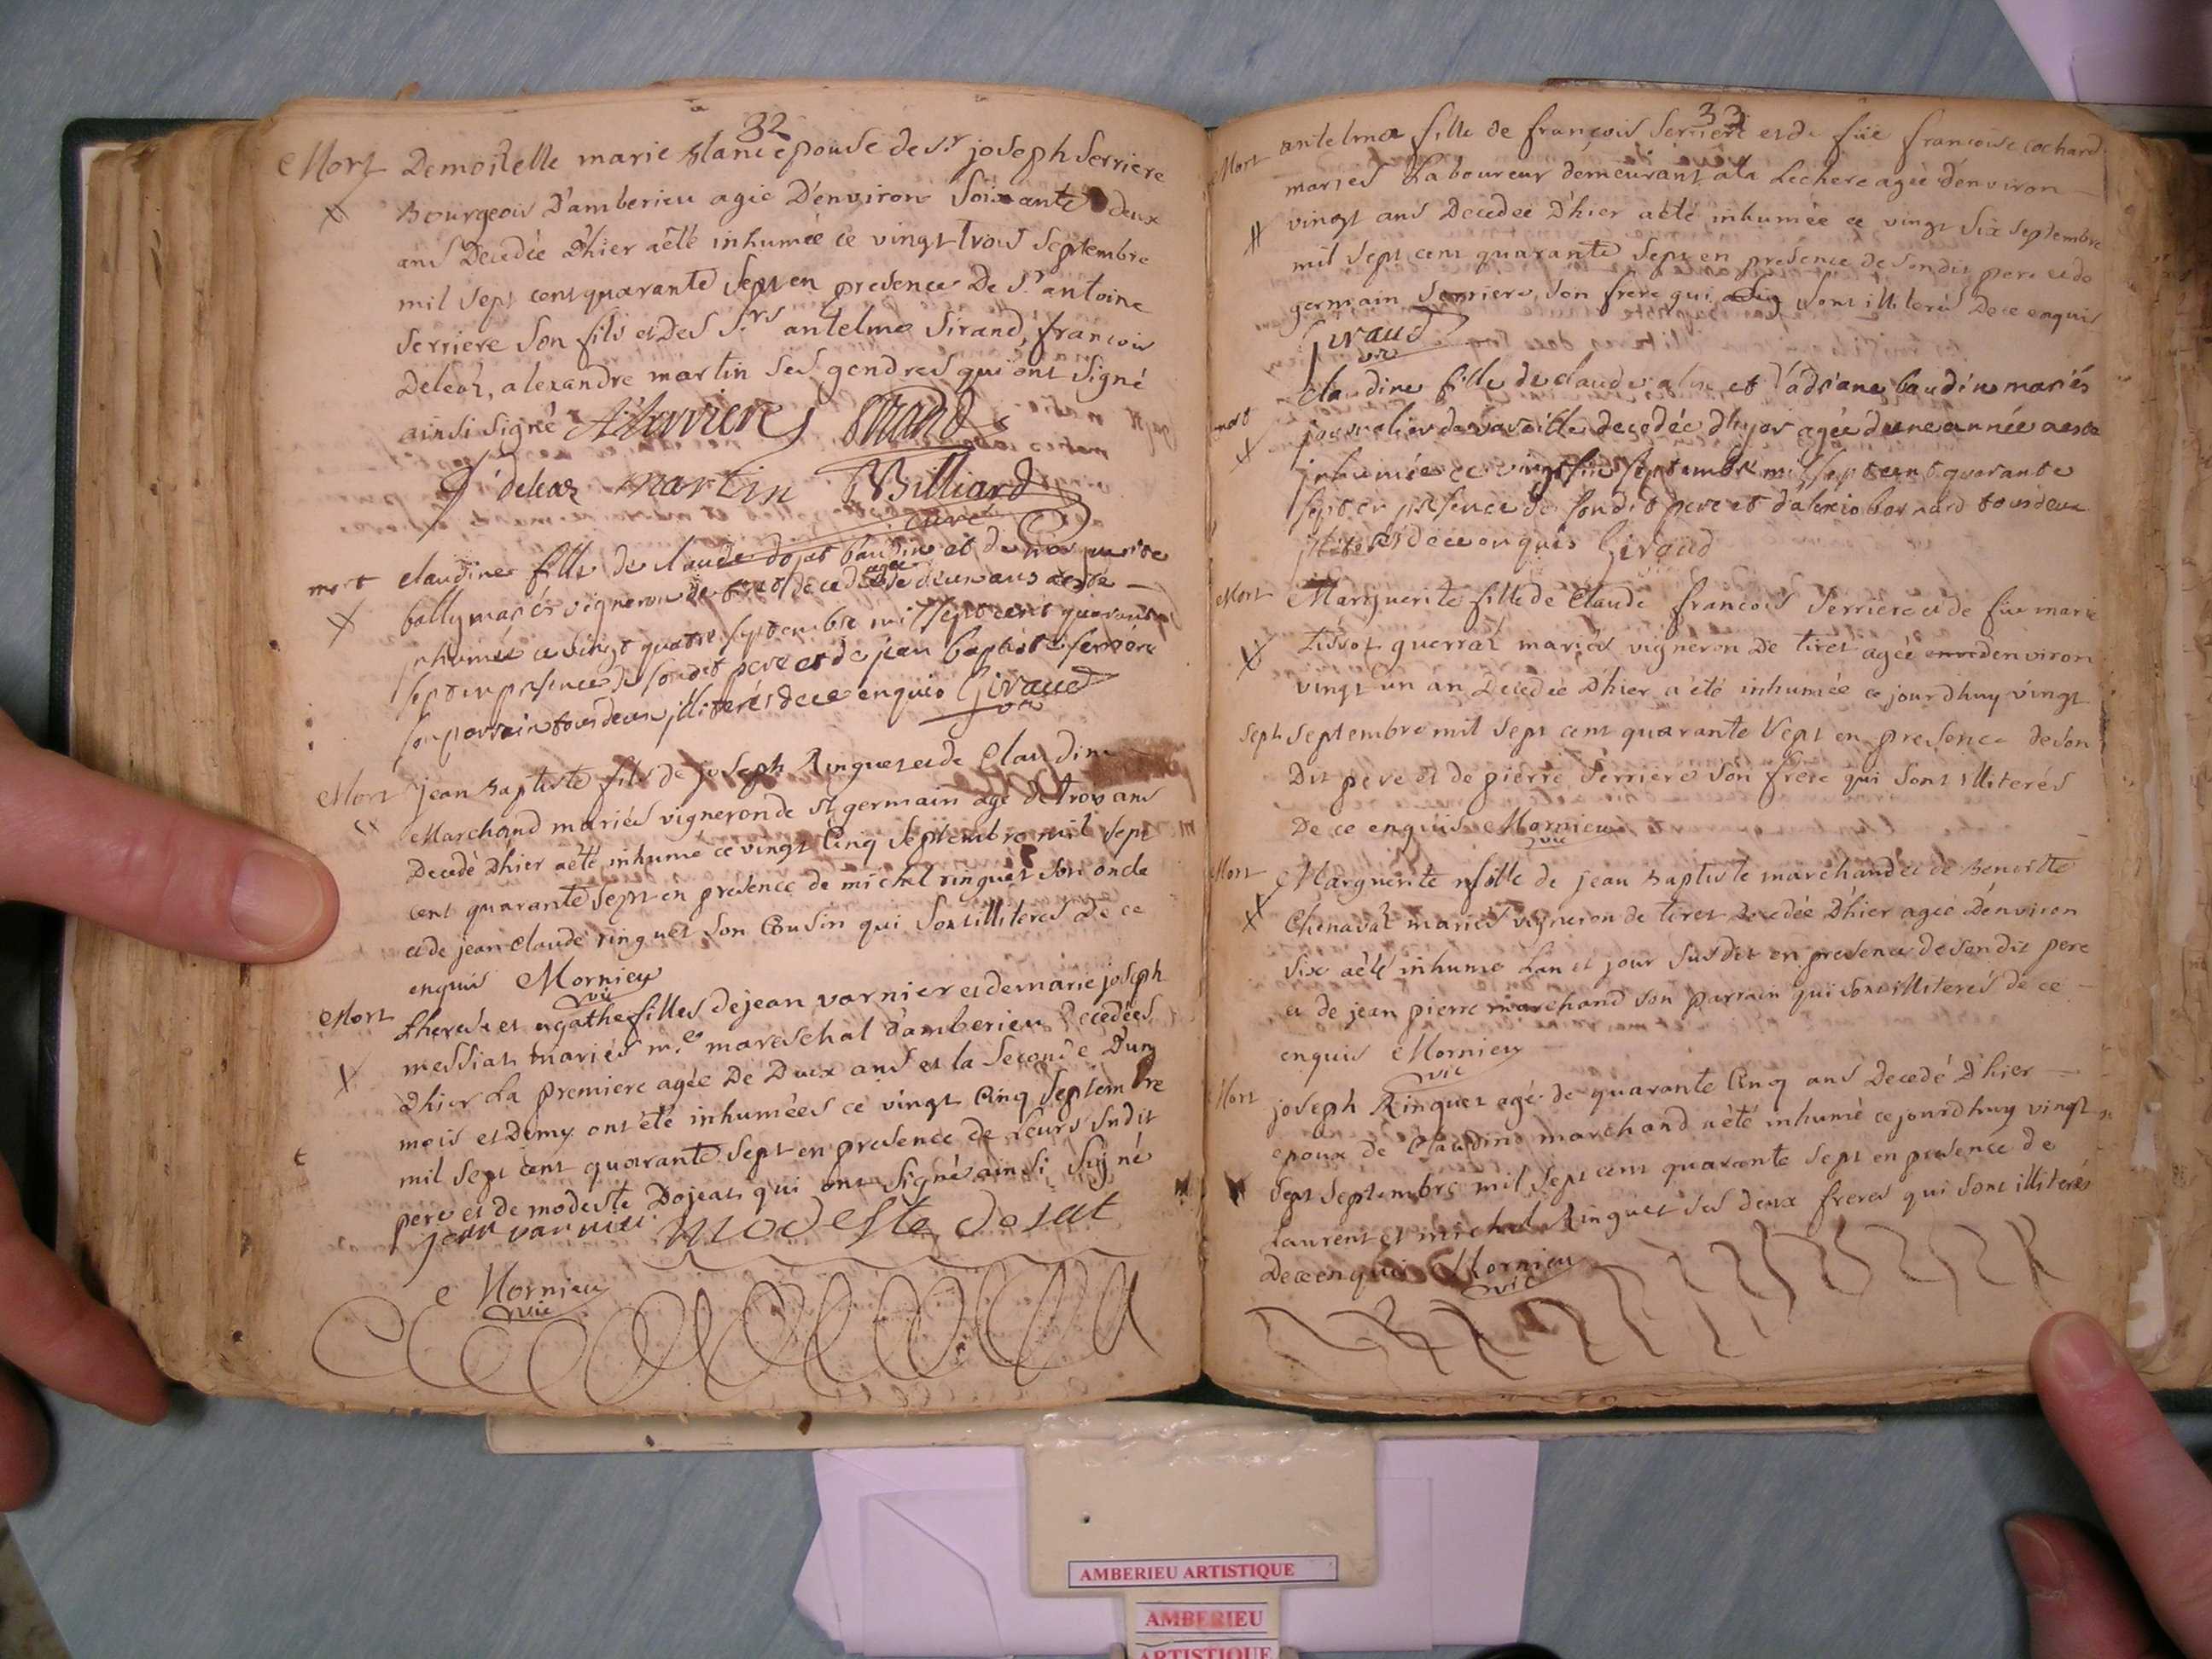 32
Mort Demoiselle marie blanc epouse de Sr joseph Serriere
bourgeois D'amberieu agée D'environ Soixante deux
ans Decedée Dhier a été inhumée ce vingt trois Septembre
mil Sept cent quarante Sept en presence De Sr antoine
Serriere Son fils et des Srs antelme Sirand, francois
Deleaz, alexandre martin Ses gendres qui ont Signé
ainsi Signé A Serriere Sirand
f deleaz martin Billiard
curé
mort claudine fille de claude dojat baudin et de marguerite
bally mariés vigneron de tiret decedée agée de deux ans a esté
inhumée ce vingt quatre septembre mil sept cent quarante
sept en presence de sondit pere et de jean baptiste serriere
son parrain tous deux illiterés de ce enquis Giraud
vic
Mort jean baptiste fils de joseph Ringuet et de Claudine
Marchand mariés vigneron de St germain agé de trois ans
Decedé Dhier a été inhumé ce vingt Cinq Septembre mil Sept
cent quarante Sept en presence de michel ringuet Son oncle
et de jean Claude ringuet Son Cousin qui Sont illiteres De ce
enquis Mornieu
vic
Mort therese et agathe filles de jean varnier et de marie joseph
messiat mariés me mareschal d'amberieu Decedées
Dhier La premiere agée De Deux ans et la Seconde D'un
mois et Demy ont été inhumées ce vingt Cinq Septembre
mil Sept cent quarante Sept en presence de Leurs Sudit
pere et de modeste Dojat qui ont Signé ainsi Signé
jean varnier modeste dojat
Mornieu
vic
33
Mort antelma fille de françois Serriere et de füe francoise cochard
mariés Laboureur demeurant a la Lechere agée d'environ
vingt ans Decedée D'hier a été inhumée ce vingt Six Septembre
mil Sept cent quarante Sept en presence de Sondit pere et de
germain Serriere Son frere qui Sont illiterés De ce enquis
Giraud
vic
mort Claudine fille de claude et d'adriane baudin mariés
decedée d'hyer agée d'une année a esté
inhumée ce vingt six septembre mil sept cent quarante
sept en presence de sondit pere et d'alexis bernard tous deux
illiterés de ce enquis Giraud
Mort Marguerite fille de Claude francois Serriere et de füe marie
tissot guerraz mariés vigneron De tiret agée d'environ
vingt un an Decedée Dhier a été inhumée ce jourdhuy vingt
Sept Septembre mil Sept cent quarante Sept en presence de Son
Dit pere et de pierre Serriere Son frere qui Sont illiterés
De ce enquis Mornieu
vic
Mort Marguerite fille de jean baptiste marchand et de benoitte
Chenaval mariés vigneron de tiret Decedée Dhier agée D'environ
Six a été inhumé Lan et jour Susdit en presence de Sondit pere
et de jean pierre marchand Son parrain qui Sont illiterés de ce
enquis Mornieu
vic
Mort joseph Ringuet agé de quarante Cinq ans Decedé D'hier
epoux de Claudine marchand a été inhumé ce jourdhuy vingt
Sept Septembre mil Sept cent quarante Sept en presence de
Laurent et michel Ringuet Ses deux freres qui Sont illiterés
De ce enquis Mornieu
vic
AMBERIEU ARTISTIQUE
AMBERIEU
ARTISTIQUE